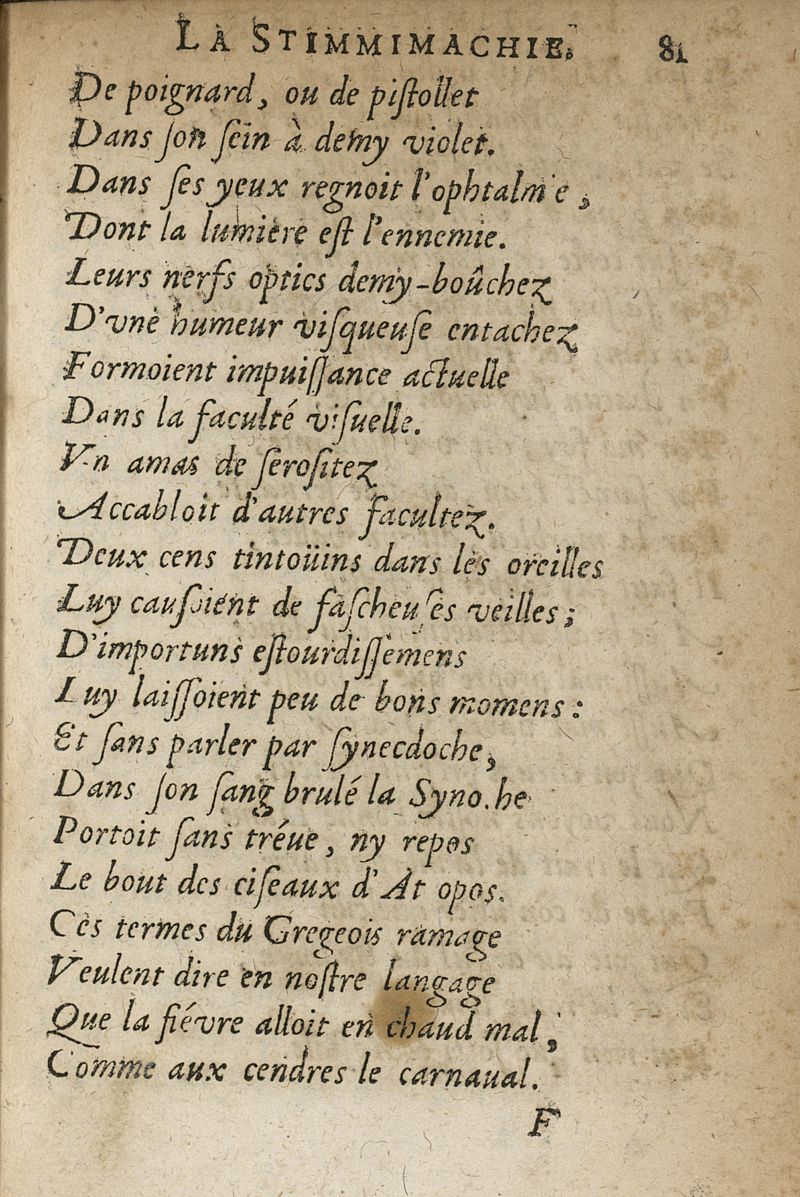 LA STIMMIMACHIE. 81
De poignard, ou de piſtollet
Dans ſon ſein à demy violet.
Dans ſes yeux regnoit l'ophtalmie,
Dont la lumiere eſt l'ennemie.
Leurs nerfs optics demy-boûchez
D'vne humeur viſqueuſe entachez
Formoient impuiſſance actuelle
Dans la faculté viſuelle.
Vn amas de ſeroſitez
Accabloit d'autres facultez.
Deux cens tintoüins dans les oreilles
Luy cauſoient de faſcheuſes veilles;
D'importuns eſtourdiſſemens
Luy laiſſoient peu de bons momens:
Et ſans parler par ſynecdoche,
Dans ſon ſang brulé la Synoche
Portoit ſans tréue, ny repos
Le bout des ciſeaux d'Atropos.
Ces termes du Gregeois ramage
Veulent dire en noſtre langage
Que la fiévre alloit en chaud mal,
Comme aux cendres le carnaual.
F